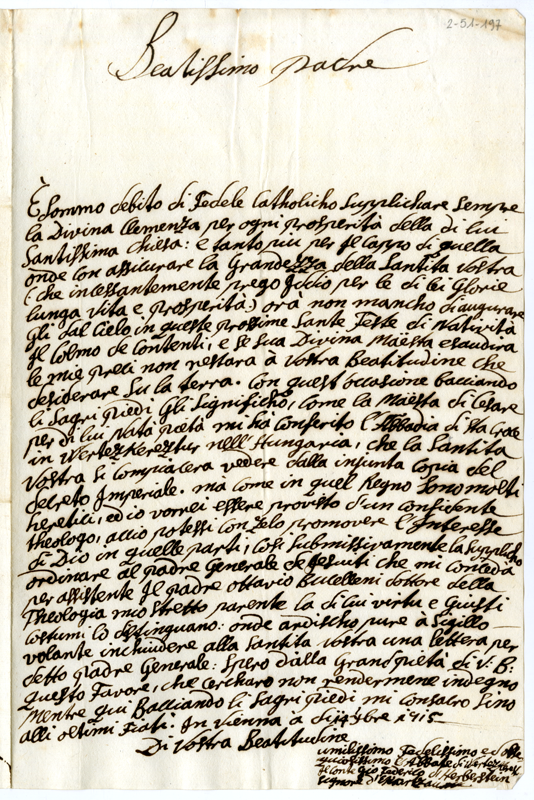 2-51-197
Beatissimo padre
È Sommo debito di Fedele Catholicho Supplichare Sempre
la Divina Clemenza per ogni prosperità della di lui
Santissima chiesa: e tanto piu per Il Cappo di quella
onde con assicurare la Grandezza della Santità Vostra
(: che incessantemente prego Iddio per le di lei Glorie
lunga vita e prosperità:) orà non mancho di augurare
gli dal Cielo in queste prossime Sante Feste di Natività
Il Colmo de Contenti, e se Sua Divina Maesta esaudira
le mie preci non restarà à Vostra Beatitudine che
desiderare Su la terra. Con quest occasione bacciando
li Sagri piedi Gli Significhò, come la Maesta di Cesare
per di lui Nata pietà mi hà conferito l'Abbadia di Sta Croce
in Wertezkereztur nell'Hungaria, che la Santità
Vostra si compiacera vedere dalla injunta copia del
decreto Imperiale. ma come in quel Regno Sono molti
heretici, ed io vorrei essere provisto d'un confidente
Theologo, accio potessi con zelo promovere l'Interesse
di Dio in quelle parti, cosi Submissivamente la Supplicho
ordinare al padre Generale de Jesuiti che mi conceda
per assistente Il padre ottavio Bucelleni dottore della
Theologia mio Stretto parente la di lui virtu e Giusti
Costumi lo distinguano: onde ardischo pure à Sigillo
volante inchiudere alla Santità Vostra una lettera per
detto padre Generale: Spero dalla Gran pietà di V: B:
questo Favore, che cercharo non rendermene indegno
Mentre qui Bacciando li Sagri piedi mi consacro Sino
alli oltimi Fiati. In Vienna a di 14 xbre 1715
Di Vostra Beatitudine
umilissimo Fedelissimo e
l'Abbate di
Il Conte Gio Federico d'Herberstein
Signore di